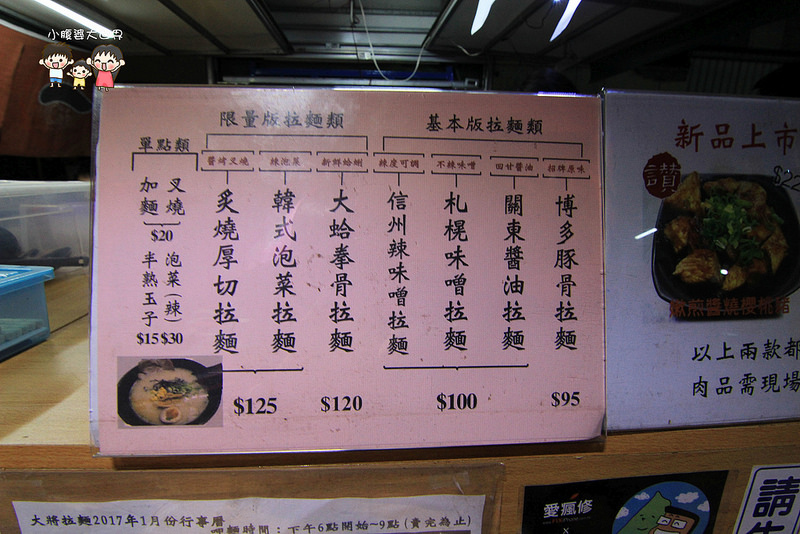 小腹婆大世界
基本版拉麵類
招牌原味
博多豚骨拉麵
$95
回甘醬油
關東醬油拉麵
不辣味噌
札幌味噌拉麵
辣度可調
信州辣味噌拉麵
$100
限量版拉麵類
新鮮蛤蜊
大蛤拳骨拉麵
$120
辣泡菜
韓式泡菜拉麵
醬烤叉燒
炙燒厚切拉麵
$125
單點類
叉燒
加麵
$20
泡菜(辣)
$30
半熟玉子
$15
新品上市
讚
以上兩款都
肉品需現場
大將拉麵2017年1月份行事曆
時間：下午6點開始~9點(賣完為止)
愛瘋修
×
請